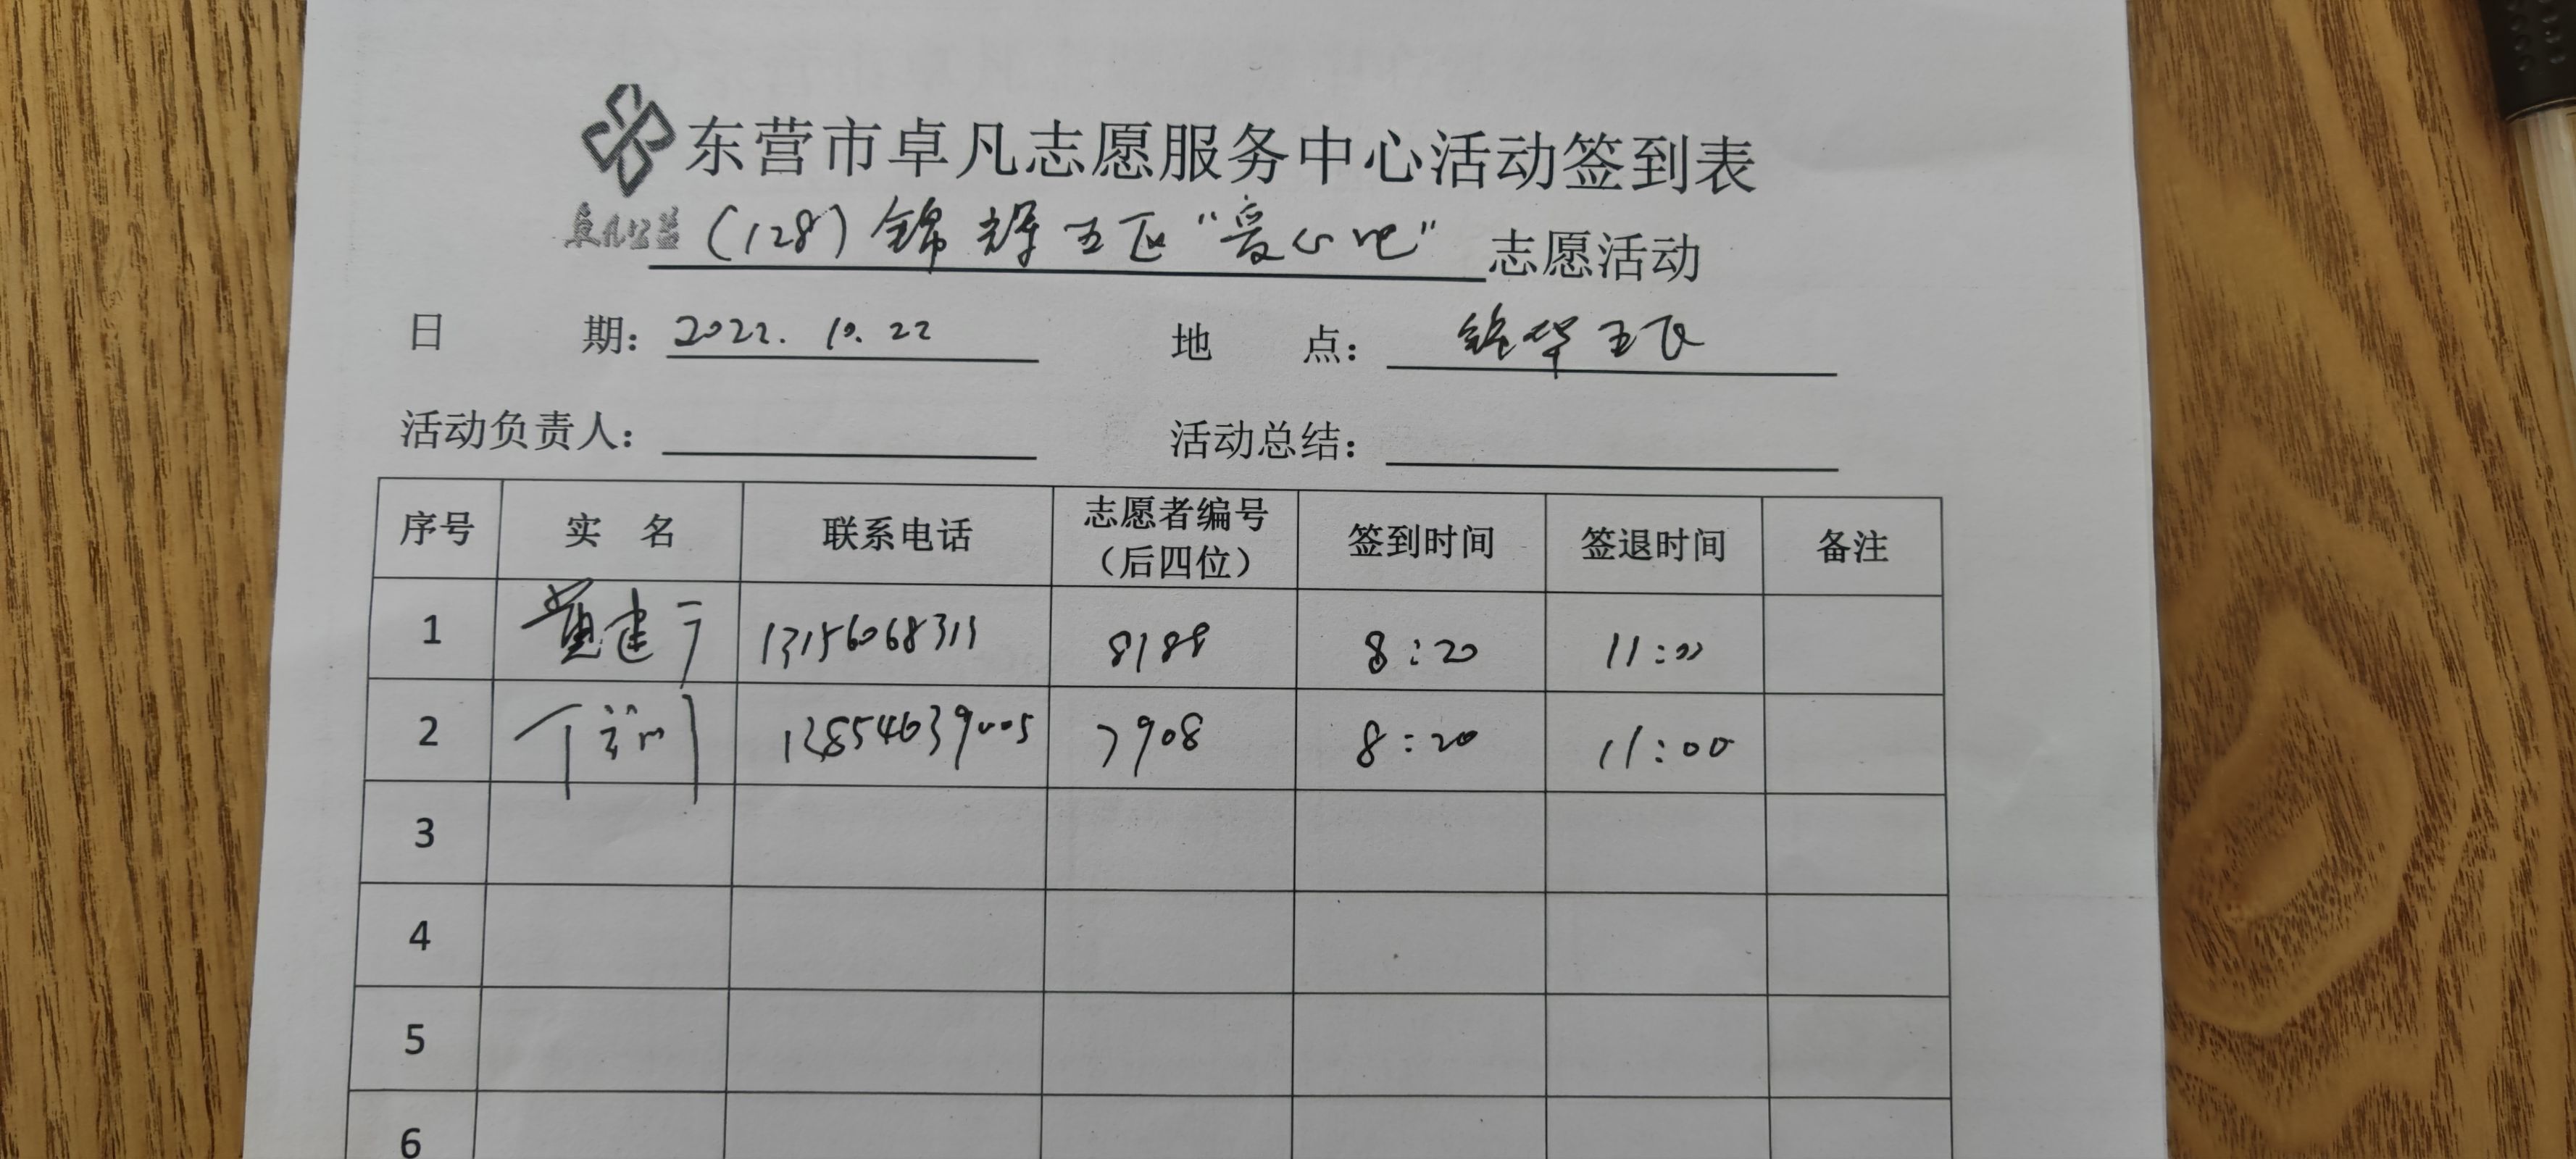 东营市卓凡志愿服务中心活动签到表
卓凡公益 (128) 锦华五区“爱心吧” 志愿活动
日 期: 2022.10.22 地 点: 锦华五区
活动负责人: 活动总结:
序号 实 名 联系电话 志愿者编号(后四位) 签到时间 签退时间 备注
1 董建 13156068311 8188 8:20 11:00
2 7908 8:20 11:00
3
4
5
6